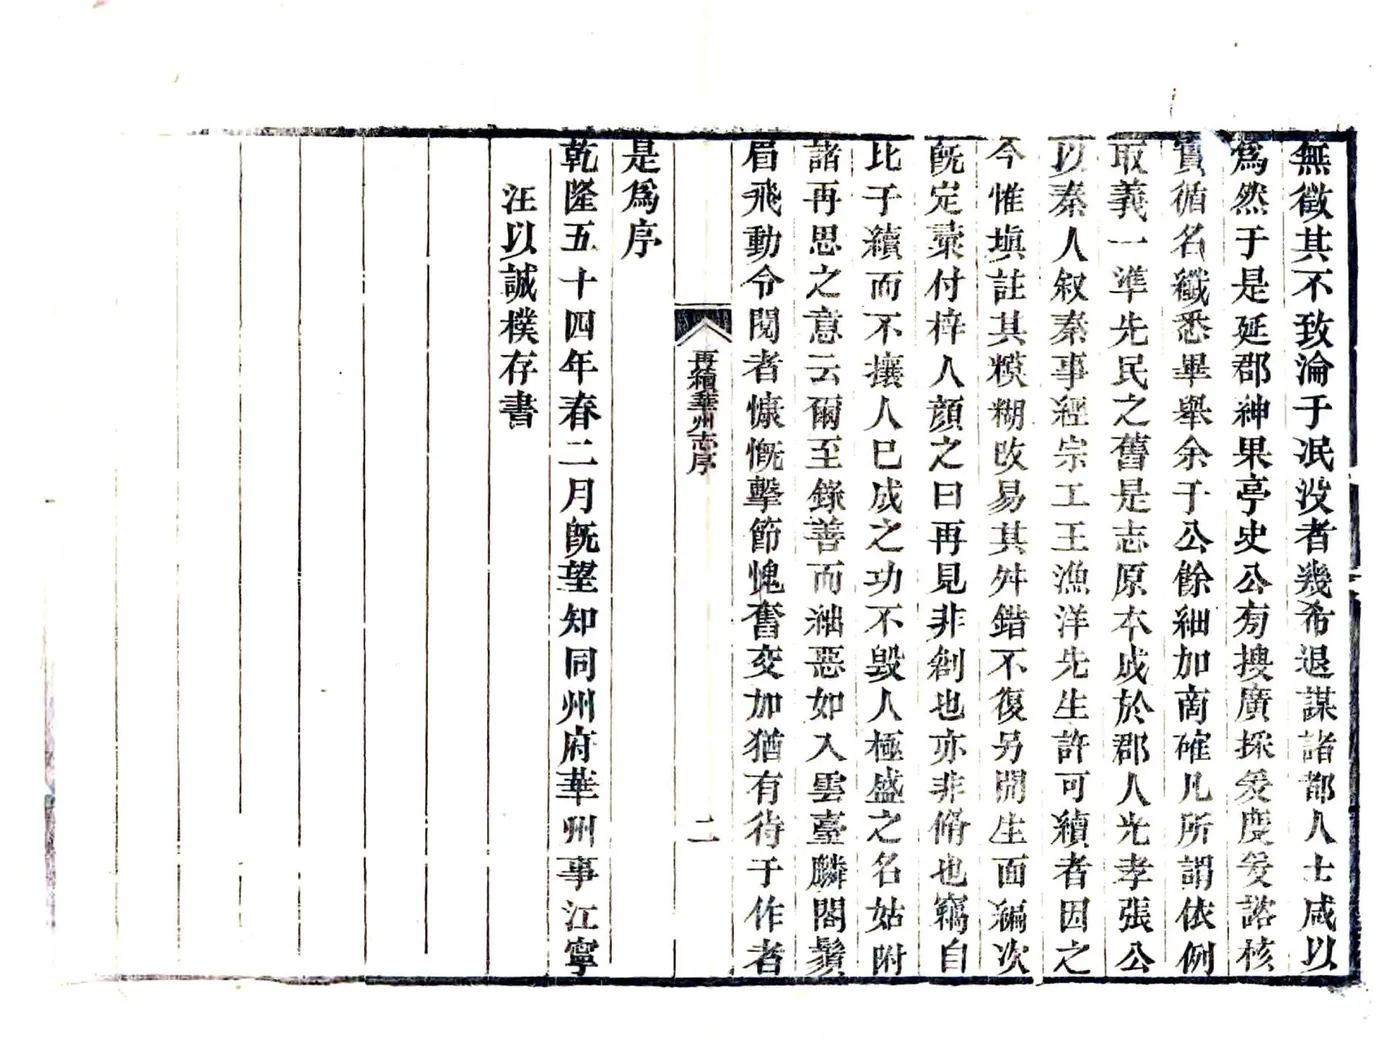 無徵其不致淪于泯沒者幾希退謀諸都人士咸以
爲然于是延郡紳果亭史公旁搜廣採爰度爰諮核
實循名纖悉畢舉余于公餘細加商確凡所謂依例
取義一準先民之舊是志原本成於郡人光孝張公
以秦人叙秦事經宗工王漁洋先生許可續者因之
今惟塡註其糢糊改易其舛錯不復另開生面編次
旣定藁付梓人顏之曰再見非創也亦非脩也竊自
比于續而不攘人巳成之功不毀人極盛之名姑附
諸再思之意云爾至錄善而絀惡如入雲臺麟閣鬚
眉飛動令閱者慷慨擊節愧奮交加猶有待于作者
再續華州志序
二
是爲序
乾隆五十四年春二月旣望知同州府華州事江寧
汪以誠樸存書